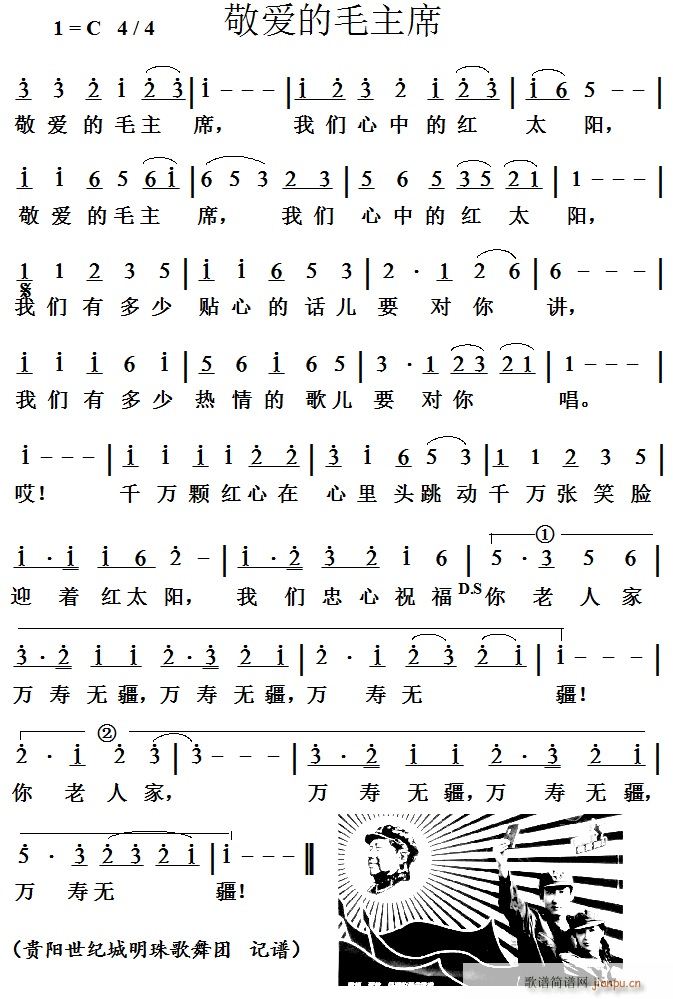 敬爱的毛主席
1 = C 4 / 4
3̇ 3̇ 2̇ i 2̇ 3̇ | i – – – | i 2̇ 3̇ 2̇ i 2̇ 3̇ | i 6 5 – – |
敬 爱 的 毛 主 席， 我 们 心 中 的 红 太 阳，
i i 6 5 6 i | 6 5 3 2 3 | 5 6 5 3 5 2 1 | 1 – – – |
敬 爱 的 毛 主 席， 我 们 心 中 的 红 太 阳，
1 1 2 3 5 | i i 6 5 3 | 2 · 1 2 6 | 6 – – – |
我 们 有 多 少 贴 心 的 话 儿 要 对 你 讲，
i i i 6 i | 5 6 i 6 5 | 3 · 1 2 3 2 1 | 1 – – – |
我 们 有 多 少 热 情 的 歌 儿 要 对 你 唱。
i – – – | i i i i 2̇ 2̇ | 3̇ i 6 5 3 | 1 1 2 3 5 |
哎！ 千 万 颗 红 心 在 心 里 头 跳 动 千 万 张 笑 脸
①
i · i i 6 2̇ – | i · 2̇ 3̇ 2̇ i 6 | 5 · 3 5 6 |
迎 着 红 太 阳， 我 们 忠 心 祝 福 D.S 你 老 人 家
3̇ · 2̇ i i 2̇ · 3̇ 2̇ i | 2̇ · i 2̇ 3̇ 2̇ i | i – – – |
万 寿 无 疆，万 寿 无 疆，万 寿 无 疆！
②
2̇ · i 2̇ 3̇ | 3̇ – – – | 3̇ · 2̇ i i 2̇ · 3̇ 2̇ i |
你 老 人 家， 万 寿 无 疆，万 寿 无 疆，
5̇ · 3̇ 2̇ 3̇ 2̇ i | i – – – ‖
万 寿 无 疆！
（贵阳世纪城明珠歌舞团 记谱）
歌谱简谱网
jianpu.cn